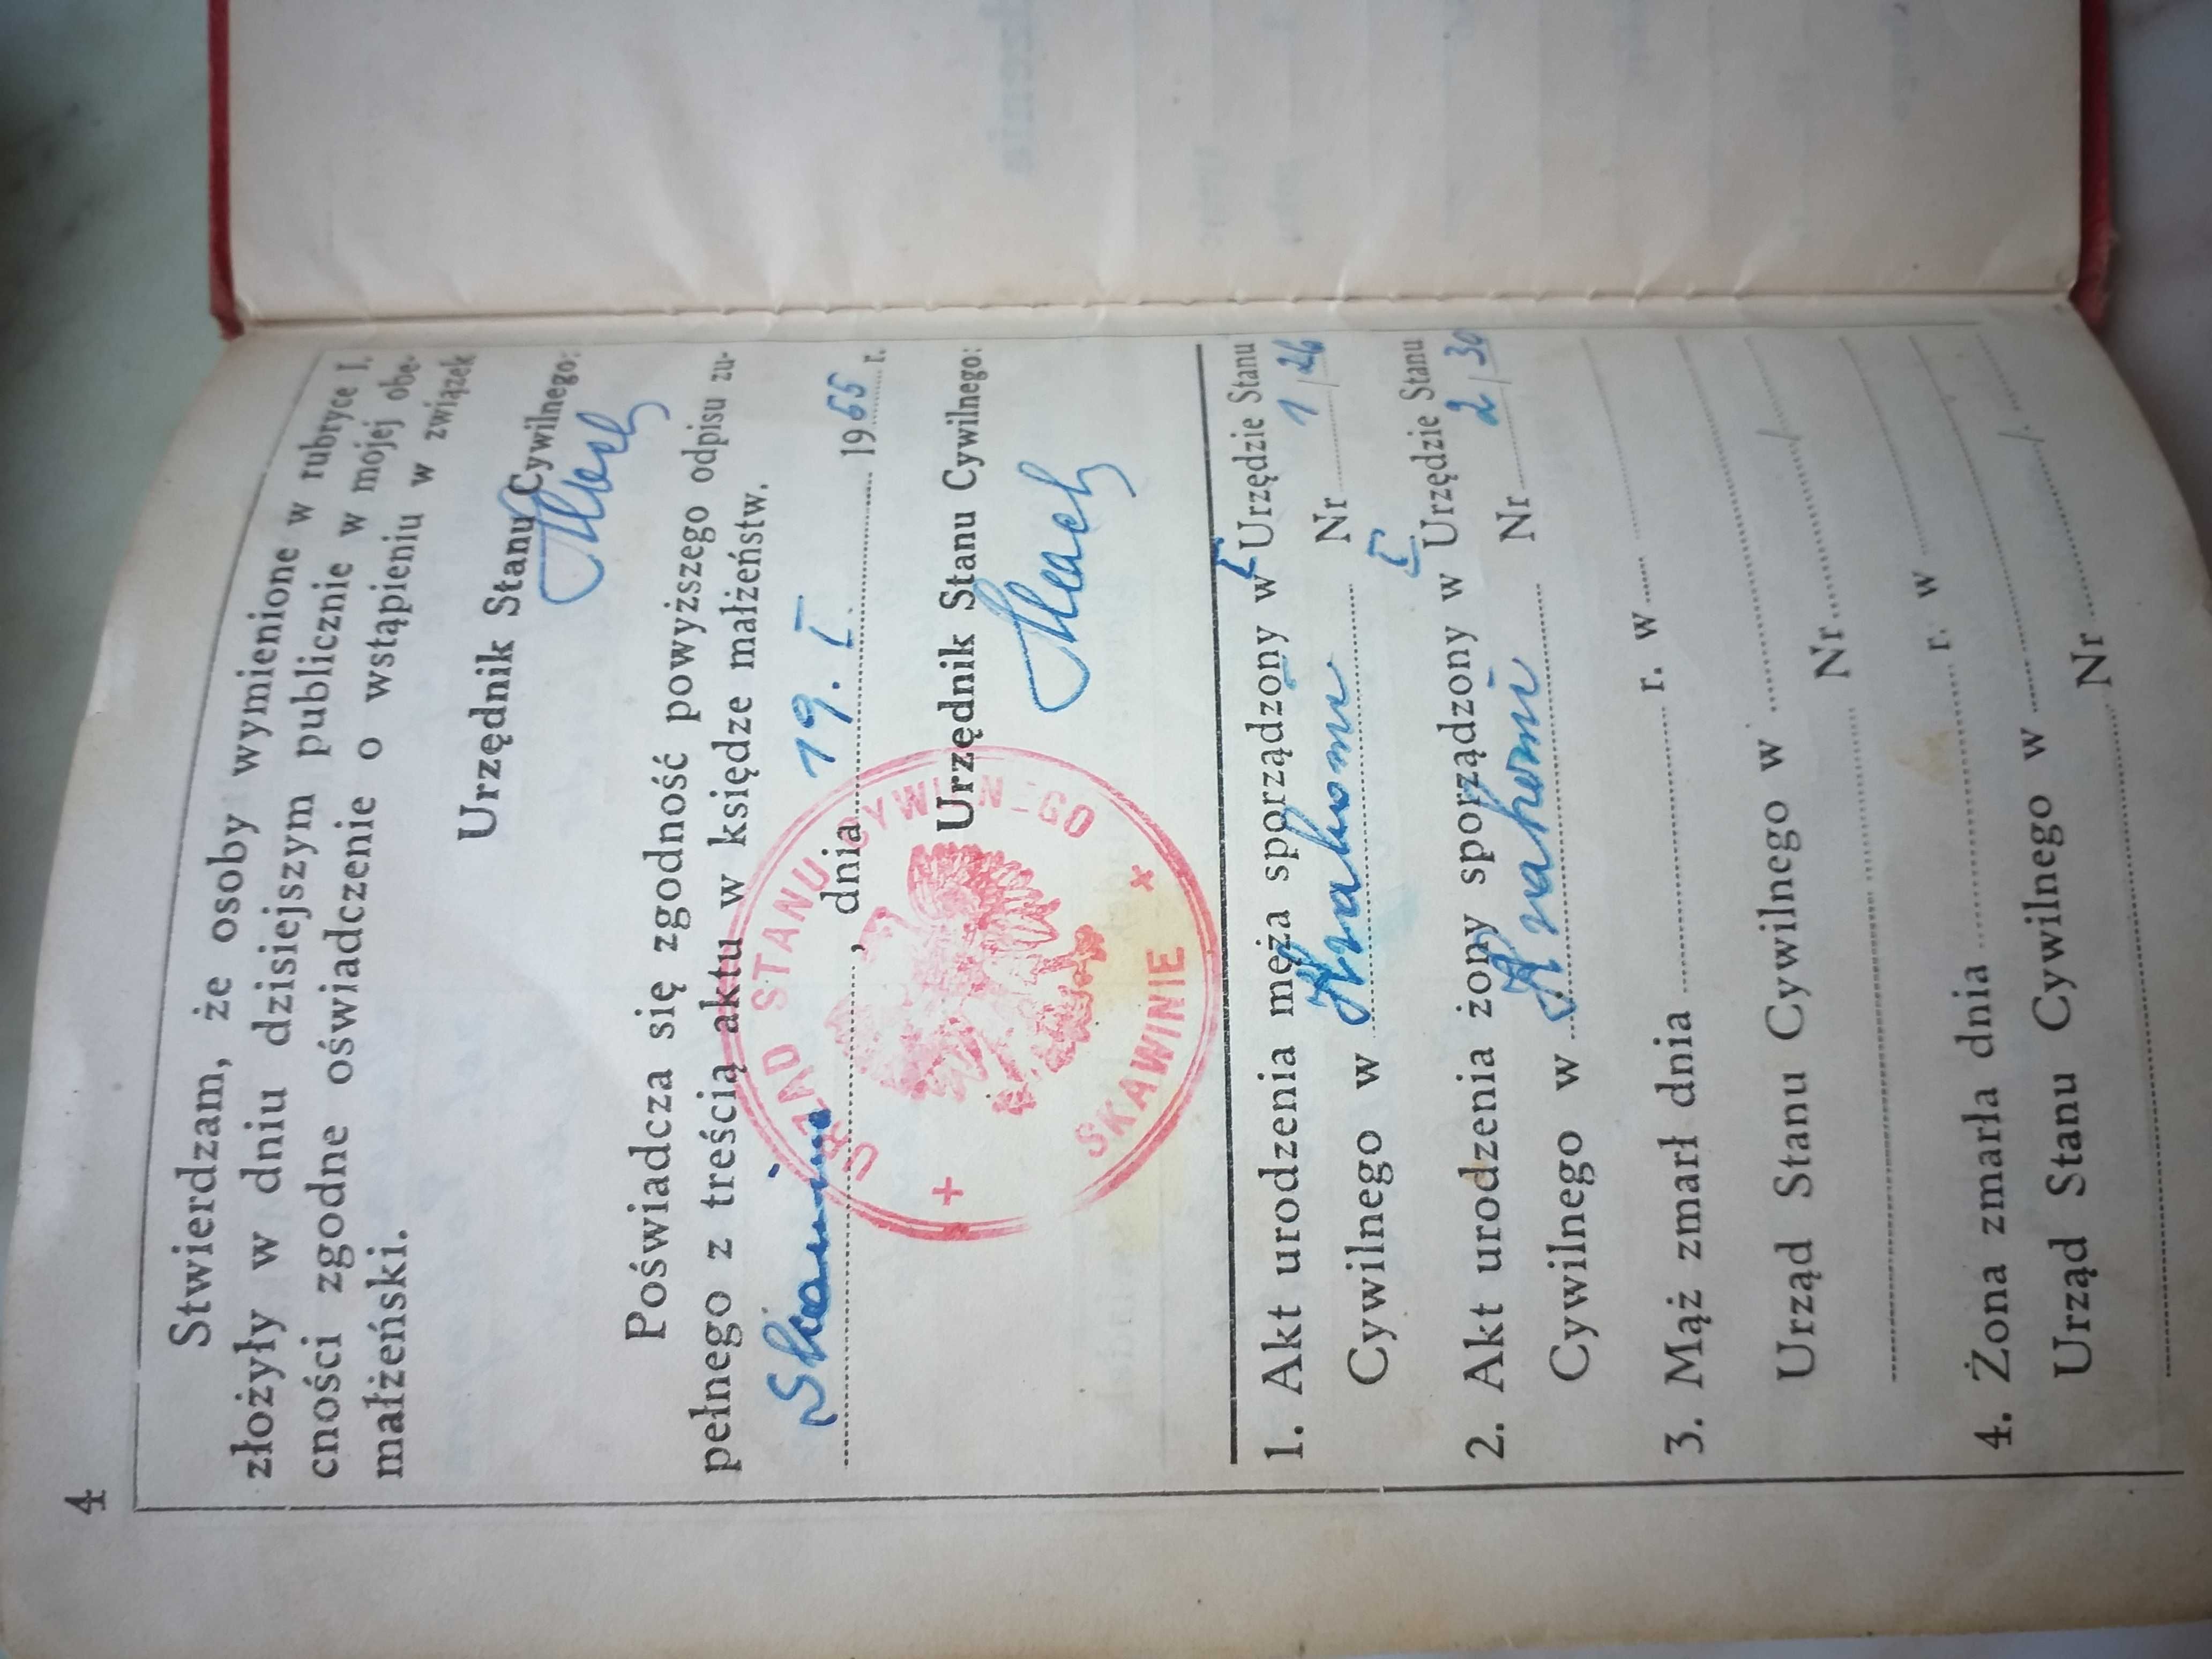 4
Stwierdzam, że osoby wymienione w rubryce I.
złożyły w dniu dzisiejszym publicznie w mojej obe-
cności zgodne oświadczenie o wstąpieniu w związek
małżeński.
Urzędnik Stanu Cywilnego:
Poświadcza się zgodność powyższego odpisu zu-
pełnego z treścią aktu w księdze małżeństw.
Skawina, dnia 19. I. 1965 r.
Urzędnik Stanu Cywilnego:
URZĄD STANU CYWILNEGO
SKAWINIE
1. Akt urodzenia męża sporządzony w Urzędzie Stanu
Cywilnego w Krakowie I Nr 1/26
2. Akt urodzenia żony sporządzony w Urzędzie Stanu
Cywilnego w Krakowie I Nr 2/30
3. Mąż zmarł dnia r. w
Urząd Stanu Cywilnego w
Nr
4. Żona zmarła dnia r. w
Urząd Stanu Cywilnego w
Nr